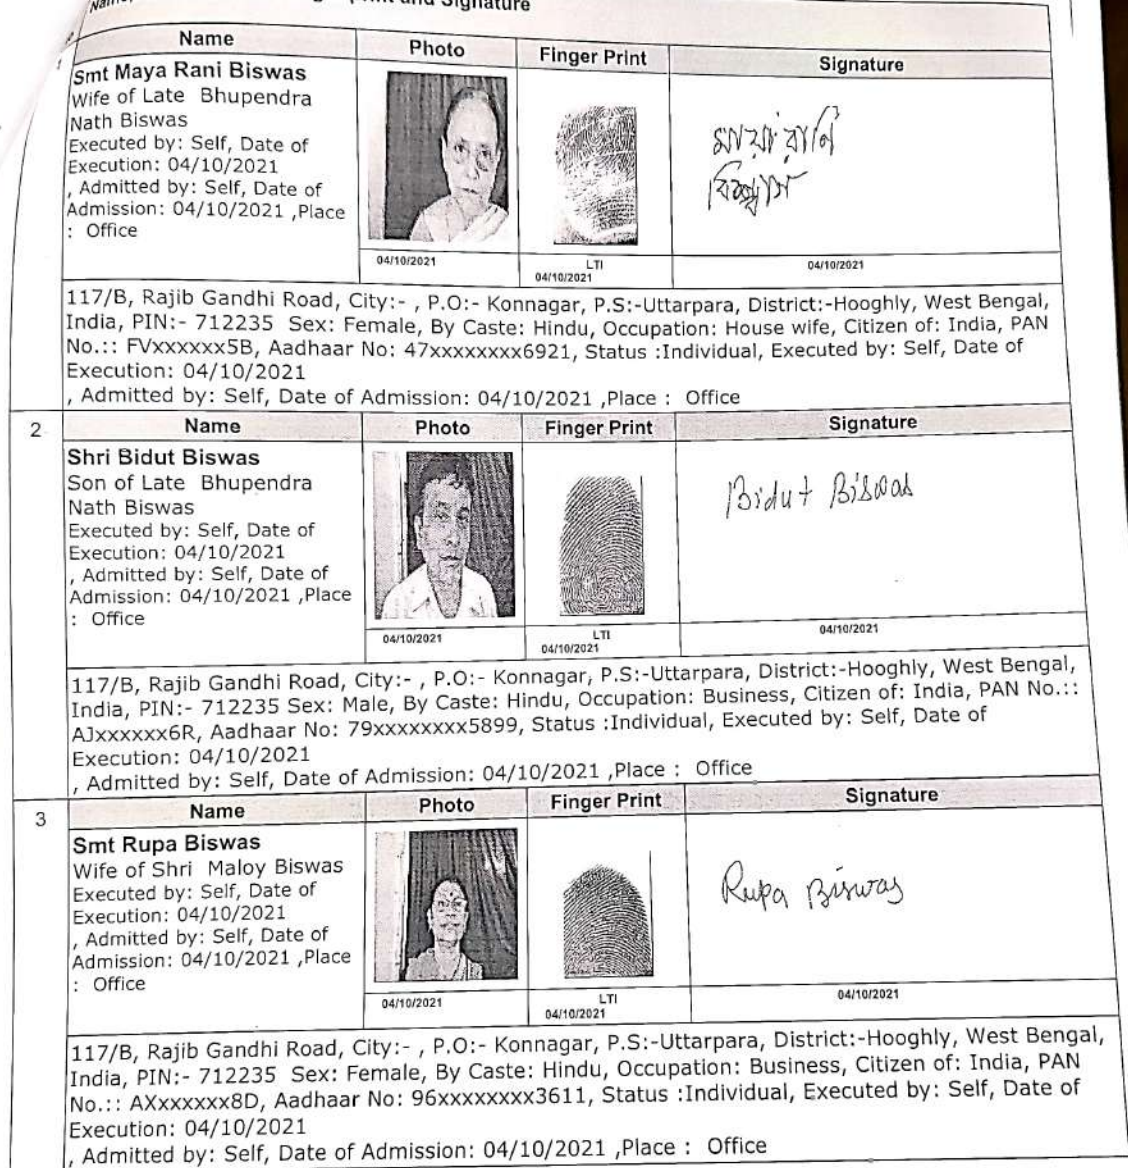 and Signature
Name Photo Finger Print Signature
1
Smt Maya Rani Biswas
Wife of Late Bhupendra
Nath Biswas
Executed by: Self, Date of
Execution: 04/10/2021
, Admitted by: Self, Date of
Admission: 04/10/2021 ,Place
: Office
মায়া রানি
বিশ্বাস
04/10/2021 LTI 04/10/2021
04/10/2021
117/B, Rajib Gandhi Road, City:- , P.O:- Konnagar, P.S:-Uttarpara, District:-Hooghly, West Bengal,
India, PIN:- 712235 Sex: Female, By Caste: Hindu, Occupation: House wife, Citizen of: India, PAN
No.:: FVxxxxxx5B, Aadhaar No: 47xxxxxxxx6921, Status :Individual, Executed by: Self, Date of
Execution: 04/10/2021
, Admitted by: Self, Date of Admission: 04/10/2021 ,Place : Office
2 Name Photo Finger Print Signature
Shri Bidut Biswas
Son of Late Bhupendra
Nath Biswas
Executed by: Self, Date of
Execution: 04/10/2021
, Admitted by: Self, Date of
Admission: 04/10/2021 ,Place
: Office
Bidut Biswas
04/10/2021 LTI 04/10/2021
04/10/2021
117/B, Rajib Gandhi Road, City:- , P.O:- Konnagar, P.S:-Uttarpara, District:-Hooghly, West Bengal,
India, PIN:- 712235 Sex: Male, By Caste: Hindu, Occupation: Business, Citizen of: India, PAN No.::
AJxxxxxx6R, Aadhaar No: 79xxxxxxxx5899, Status :Individual, Executed by: Self, Date of
Execution: 04/10/2021
, Admitted by: Self, Date of Admission: 04/10/2021 ,Place : Office
3 Name Photo Finger Print Signature
Smt Rupa Biswas
Wife of Shri Maloy Biswas
Executed by: Self, Date of
Execution: 04/10/2021
, Admitted by: Self, Date of
Admission: 04/10/2021 ,Place
: Office
Rupa Biswas
04/10/2021 LTI 04/10/2021
04/10/2021
117/B, Rajib Gandhi Road, City:- , P.O:- Konnagar, P.S:-Uttarpara, District:-Hooghly, West Bengal,
India, PIN:- 712235 Sex: Female, By Caste: Hindu, Occupation: Business, Citizen of: India, PAN
No.:: AXxxxxxx8D, Aadhaar No: 96xxxxxxxx3611, Status :Individual, Executed by: Self, Date of
Execution: 04/10/2021
, Admitted by: Self, Date of Admission: 04/10/2021 ,Place : Office